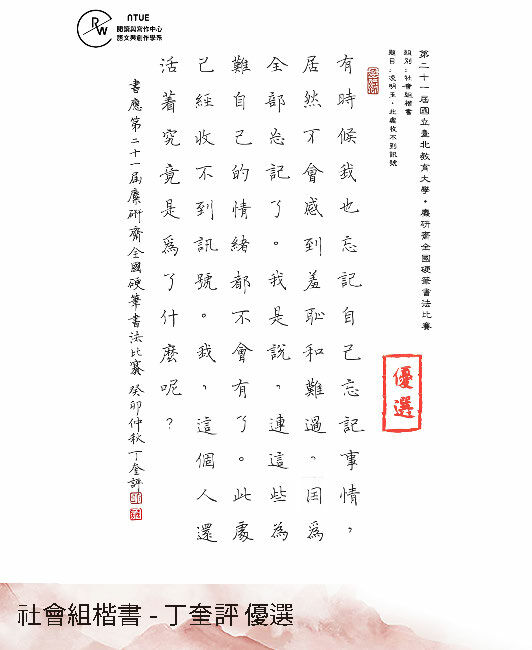 RW
NTUE
閱讀與寫作中心
語文與創作學系
第二十一屆國立臺北教育大學。麋研齋全國硬筆書法比賽
類別：社會組楷書
題目：凌明玉。此處收不到訊號
有時候我也忘記自己忘記事情，
居然不會感到羞恥和難過。因爲
全部忘記了。我是說，連這些為
難自己的情緒都不會有了。此處
已經收不到訊號。我，這個人還
活著究竟是爲了什麼呢？
書應第二十一屆麋研齋全國硬筆書法比賽 癸卯仲秋丁奎評
優選
社會組楷書 - 丁奎評 優選